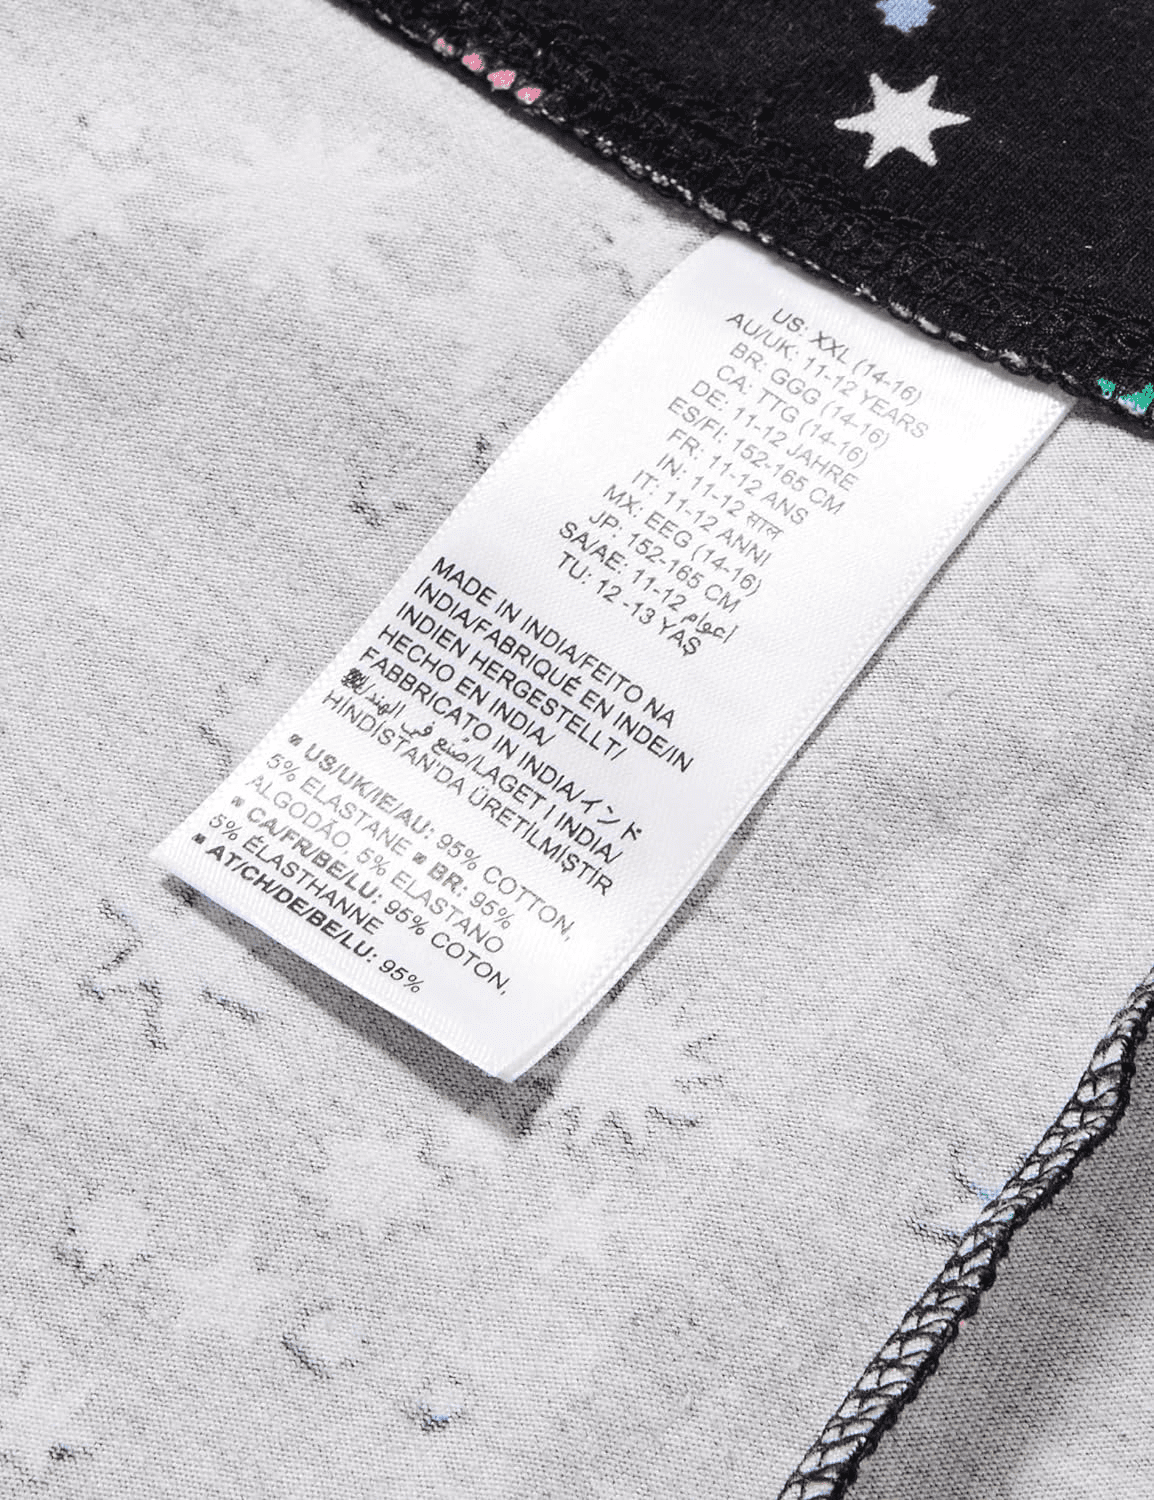 US: XXL (14-16)
AU/UK: 11-12 YEARS
BR: GGG (14-16)
CA: TTG (14-16)
DE: 11-12 JAHRE
ES/FI: 152-165 CM
FR: 11-12 ANS
IN: 11-12 साल
IT: 11-12 ANNI
MX: EEG (14-16)
JP: 152-165 CM
SA/AE: 11-12 أعوام
TU: 12 -13 YAŞ
MADE IN INDIA/FEITO NA
ÍNDIA/FABRIQUÉ EN INDE/IN
INDIEN HERGESTELLT/
HECHO EN INDIA/
FABBRICATO IN INDIA/インド
صُنع في الهند/LAGET I INDIA/
HİNDİSTAN'DA ÜRETİLMİŞTİR
US/UK/IE/AU: 95% COTTON,
5% ELASTANE BR: 95%
ALGODÃO, 5% ELASTANO
CA/FR/BE/LU: 95% COTON,
5% ÉLASTHANNE
AT/CH/DE/BE/LU: 95%